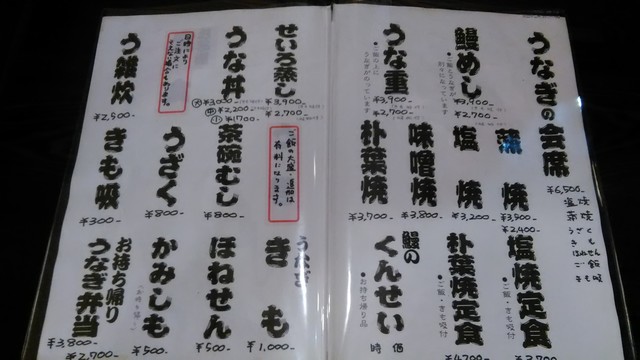 うなぎの会席
¥6,500-
塩焼
蒲焼
うざく
きも
ほねせん
ご飯
鰻めし
¥3,900-
¥2,700-
うな重
●ご飯の上にうなぎがのっています
¥3,900-
¥2,700-
蒲焼
¥3,900-
¥2,400-
塩焼
¥3,200-
味噌焼
¥3,800-
朴葉焼
¥3,700-
塩焼定食
●ご飯・きも吸付
朴葉焼定食
●ご飯・きも吸付
鰻のくんせい
●お持ち帰り品
時価
せいろ蒸し
¥3,900-
¥2,700-
うな丼
大 ¥3,000-
中 ¥2,200
小 ¥1700-
う雑炊
¥2,500-
ご飯の大盛・追加は有料になります。
茶碗むし
¥800-
うざく
¥800-
きも吸
¥300-
うなぎきも
¥1,000-
ほねせん
¥500-
かみしも
¥500-
お持ち帰り
うなぎ弁当
¥3,800-
¥2,700-